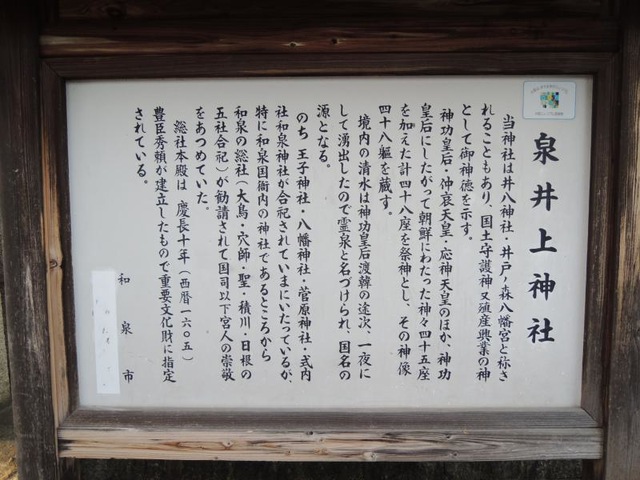 泉井上神社
当神社は井八神社・井戸ノ森八幡宮と称さ
れることもあり、国土守護神又殖産興業の神
として御神徳を示す。
神功皇后・仲哀天皇・応神天皇のほか、神功
皇后にしたがって朝鮮にわたった神々四十五座
を加えた計四十八座を祭神とし、その神像
四十八軀を蔵す。
境内の清水は神功皇后渡韓の途次、一夜に
して湧出したので霊泉と名づけられ、国名の
源となる。
のち王子神社・八幡神社・菅原神社・式内
社和泉神社が合祀されていまにいたっているが、
特に和泉国衙内の神社であるところから
和泉の総社(大鳥・穴師・聖・積川・日根の
五社合祀)が勧請されて国司以下宮人の崇敬
をあつめていた。
総社本殿は、慶長十年(西暦一六〇五)
豊臣秀頼が建立したもので重要文化財に指定
されている。
和泉市